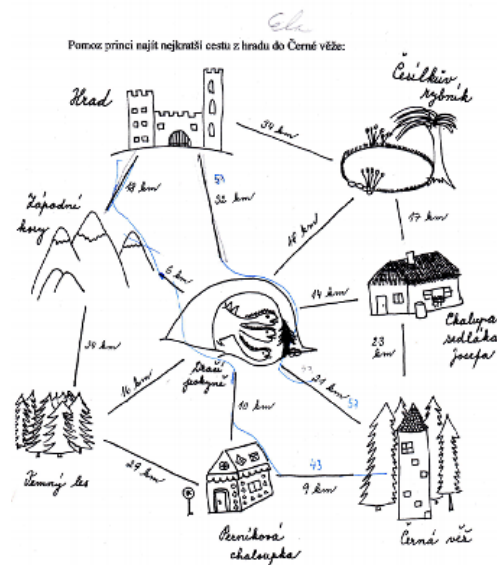 Ela
Pomoz princi najít nejkratší cestu z hradu do Černé věže:
Hrad
Čísílkův
rybník
34 km
18 km
53
32 km
Západné
hory
17 km
6 km
14 km
Chalupa
sedláka
Josefa
23
km
34 km
dračí
jeskyně
16 km
21 km
53
10 km
Temný les
29 km
43
9 km
Perníková
chaloupka
Černá věž